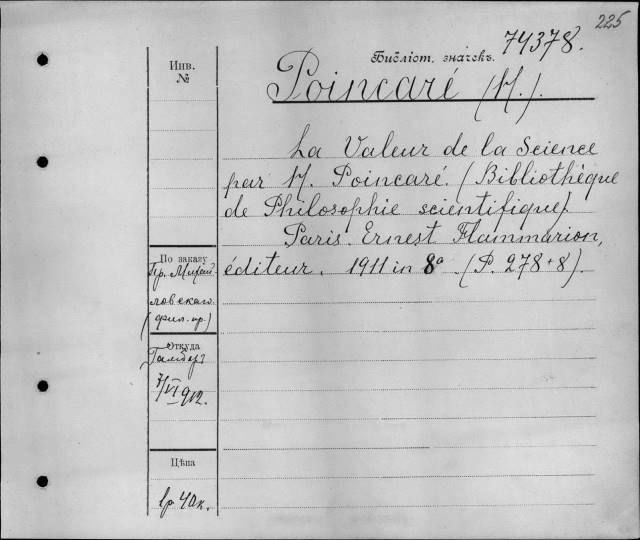 225
74378.
Библіот. значекъ
Инв.
№
Poincaré (H.).
La Valeur de la Science
par H. Poincaré. (Bibliothèque
de Philosophie scientifique).
Paris. Ernest Flammarion,
éditeur. 1911 in 8° (P. 278+8).
По заказу
Пр. Михай-
ловскаго.
(фил. пр.)
Откуда
7/VI 912.
Цѣна
1р 40к.